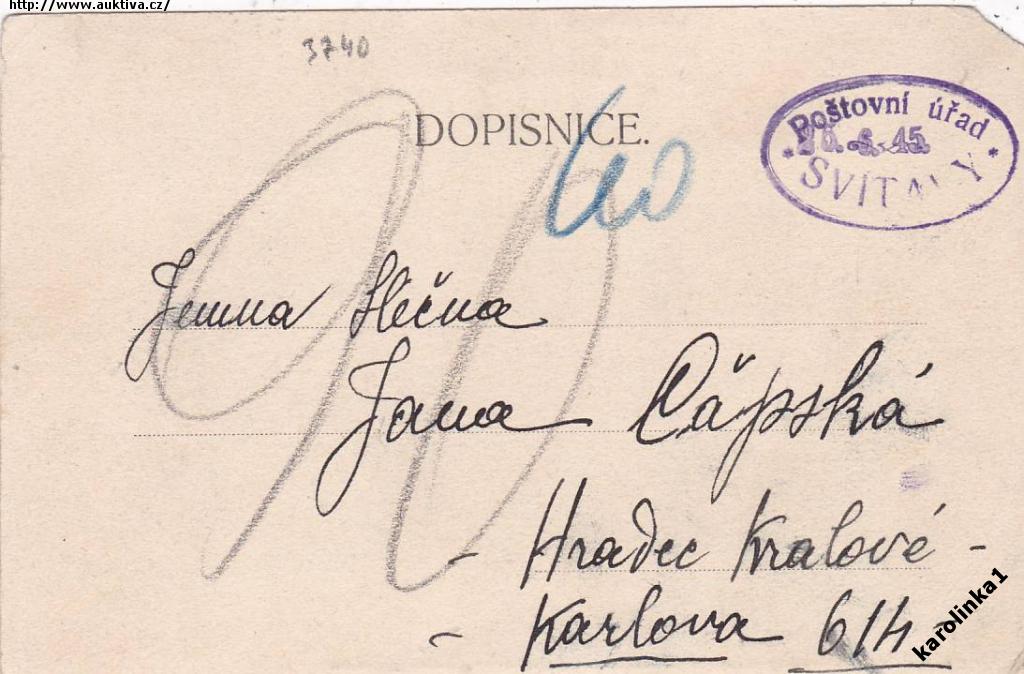 http://www.auktiva.cz/
3740
DOPISNICE.
40
90
Poštovní úřad
* 6. 45 *
SVITAVY
Jemná Slečna
Jana Čápská
- Hradec Kralové -
- Karlova 614 -
karolinka1